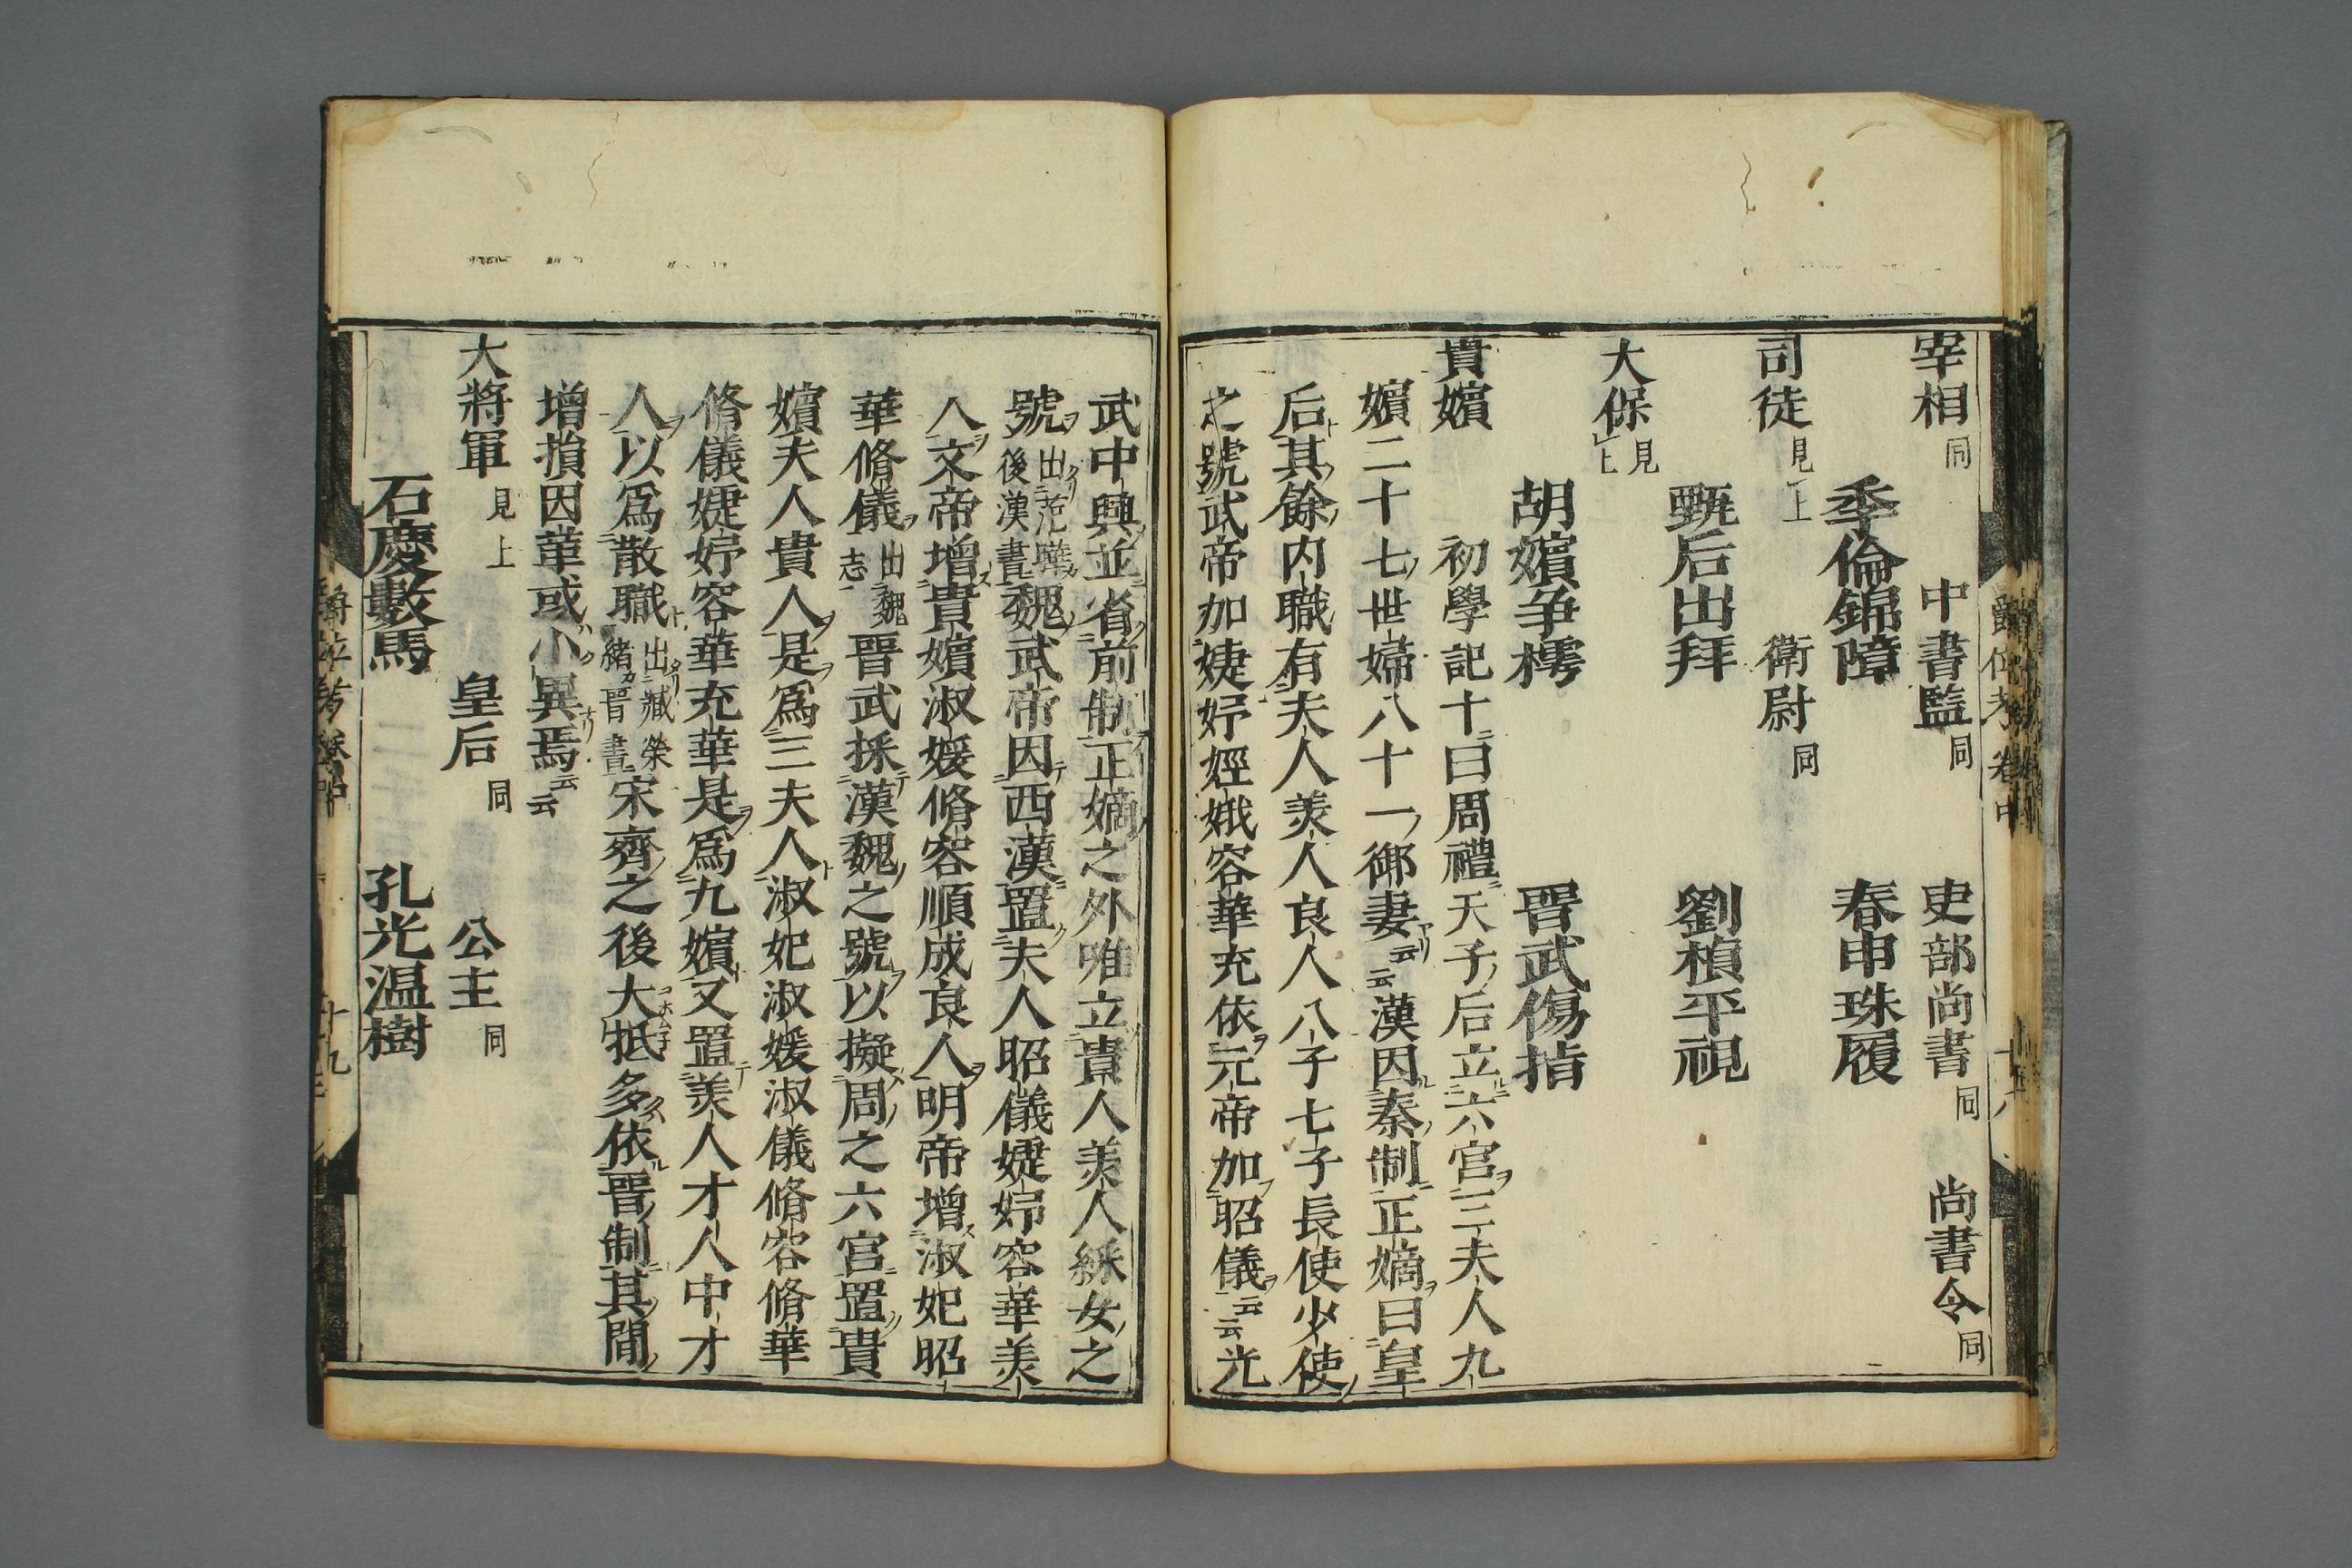 宰相同 中書監同 吏部尚書同 尚書令同
季倫錦障 春申珠履
司徒見上 衛尉同
甄后出拜 劉楨平視
大保見上
胡嬪争樗 晋武傷指
貴嬪 初學記十曰周禮天子后立六宮三夫人九
嬪二十七世婦八十一御妻云云漢因秦制正嫡曰皇
后其餘内職有夫人美人良人八子七子長使少使
之號武帝加婕妤娙娥容華充依元帝加昭儀云云光
武中興並省前制正嫡之外唯立貴人美人綵女之
號出范曄後漢書魏武帝因西漢置夫人昭儀婕妤容華美
人文帝增貴嬪淑媛脩容順成良人明帝增淑妃昭
華脩儀出魏志晋武採漢魏之號以擬周之六宮置貴
嬪夫人貴人是爲三夫人淑妃淑媛淑儀脩容脩華
脩儀婕妤容華充華是爲九嬪又置美人才人中才
人以爲散職出臧榮緒晋書宋齊之後大抵多依晋制其間
增損因革或小異焉云云
大將軍見上 皇后同 公主同
石慶數馬 孔光温樹
爵位考 卷中 十九